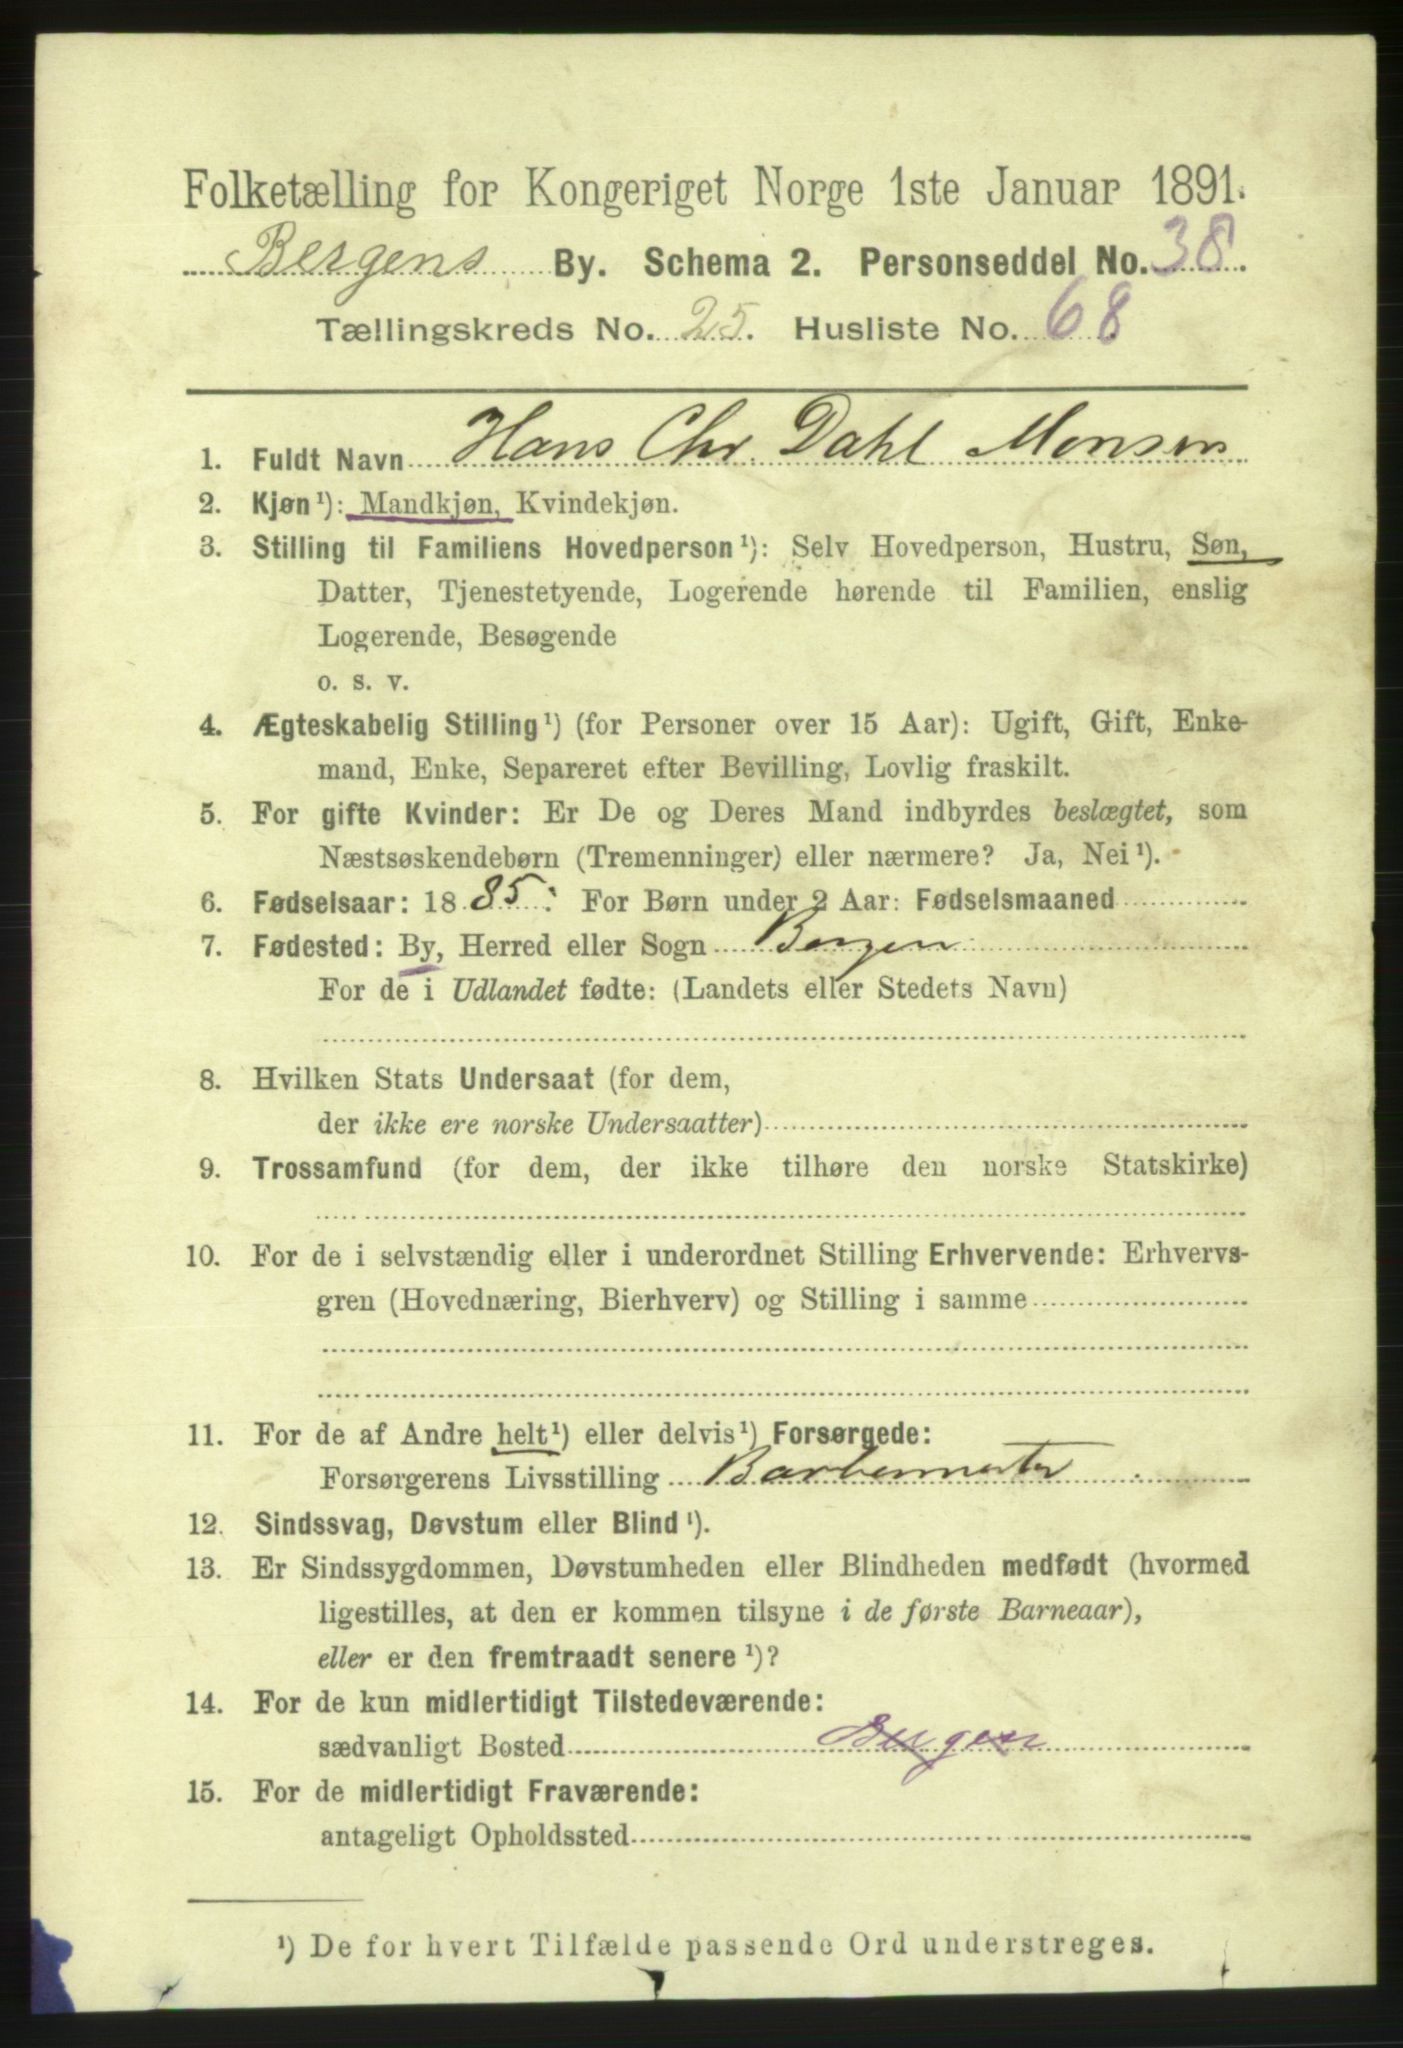 Folketælling for Kongeriget Norge 1ste Januar 1891.
Bergens By. Schema 2. Personseddel No. 38.
Tællingskreds No. 25. Husliste No. 68
1. Fuldt Navn Hans Chr. Dahl Monsen
2. Kjøn¹): Mandkjøn, Kvindekjøn.
3. Stilling til Familiens Hovedperson¹): Selv Hovedperson, Hustru, Søn,
Datter, Tjenestetyende, Logerende hørende til Familien, enslig
Logerende, Besøgende
o. s. v.
4. Ægteskabelig Stilling¹) (for Personer over 15 Aar): Ugift, Gift, Enke-
mand, Enke, Separeret efter Bevilling, Lovlig fraskilt.
5. For gifte Kvinder: Er De og Deres Mand indbyrdes beslægtet, som
Næstsøskendebørn (Tremenninger) eller nærmere? Ja, Nei¹).
6. Fødselsaar: 1885: For Børn under 2 Aar: Fødselsmaaned
7. Fødested: By, Herred eller Sogn Bergen
For de i Udlandet fødte: (Landets eller Stedets Navn)
8. Hvilken Stats Undersaat (for dem,
der ikke ere norske Undersaatter)
9. Trossamfund (for dem, der ikke tilhøre den norske Statskirke)
10. For de i selvstændig eller i underordnet Stilling Erhvervende: Erhvervs-
gren (Hovednæring, Bierhverv) og Stilling i samme
11. For de af Andre helt¹) eller delvis¹) Forsørgede:
Forsørgerens Livsstilling Barbermester
12. Sindssvag, Døvstum eller Blind¹).
13. Er Sindssygdommen, Døvstumheden eller Blindheden medfødt (hvormed
ligestilles, at den er kommen tilsyne i de første Barneaar),
eller er den fremtraadt senere¹)?
14. For de kun midlertidigt Tilstedeværende:
sædvanligt Bosted Bergen
15. For de midlertidigt Fraværende:
antageligt Opholdssted
¹) De for hvert Tilfælde passende Ord understreges.